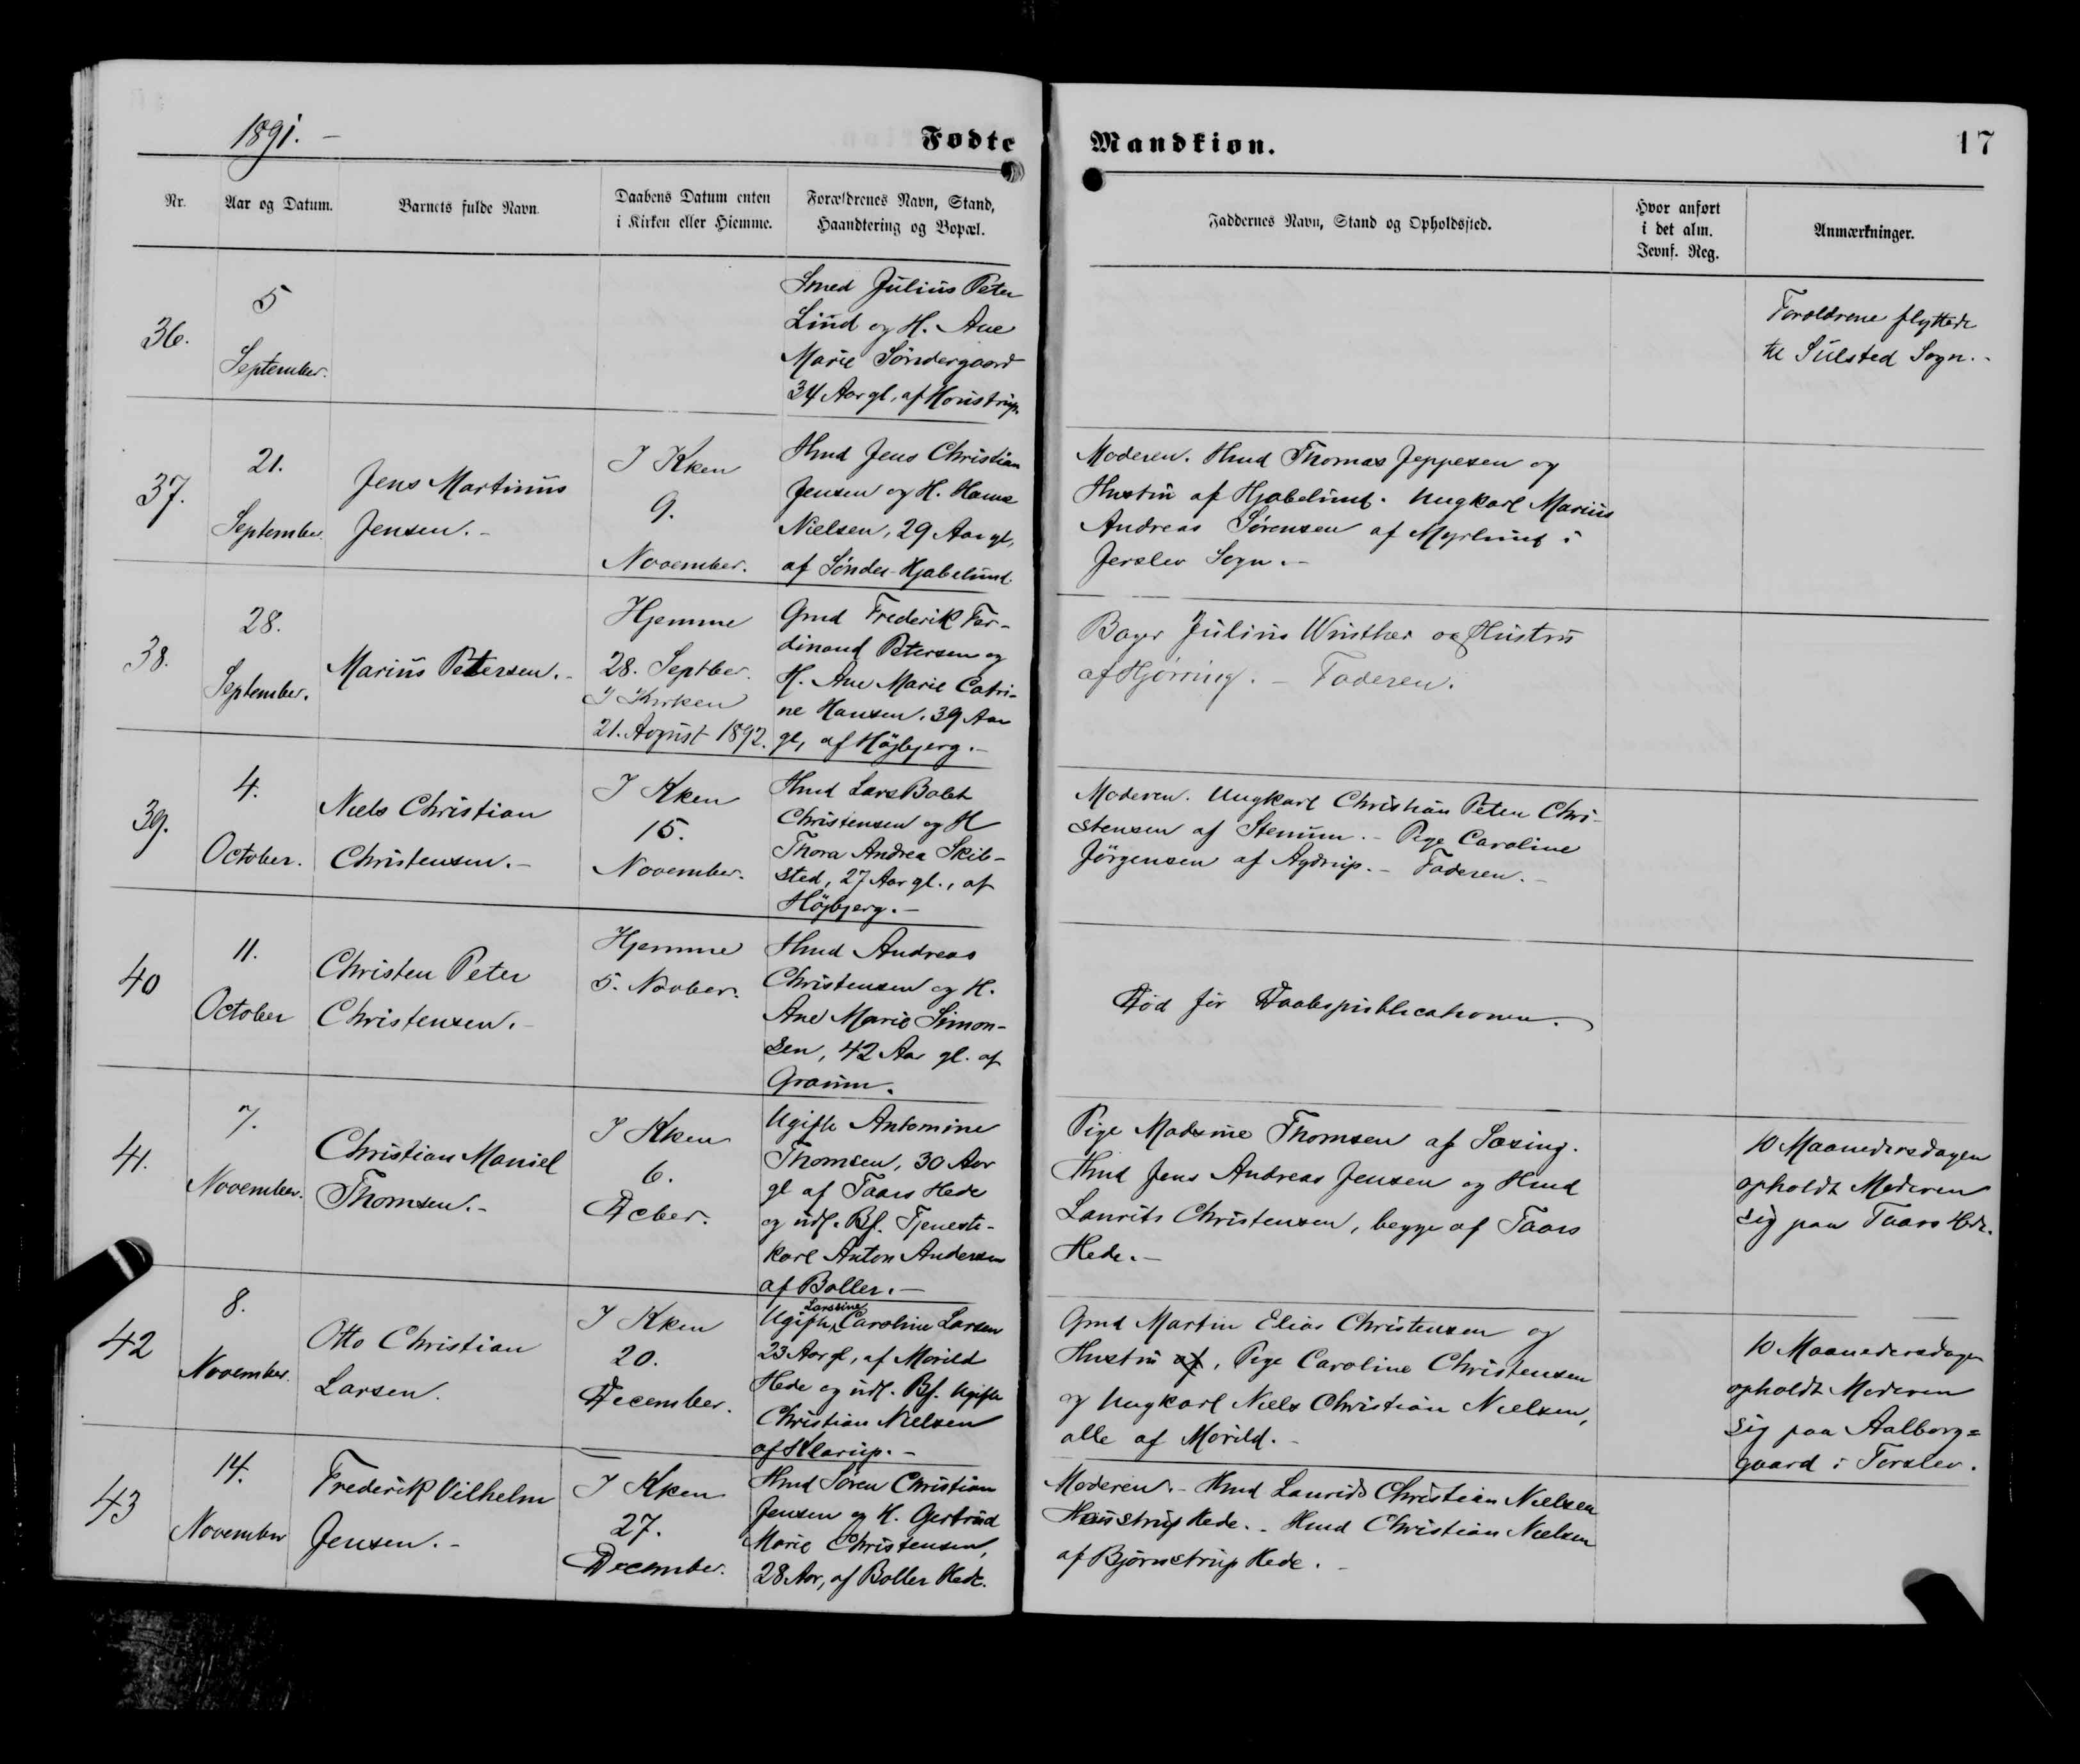 1891. –
Fødte
Mandkiøn.
17
Nr.
Aar og Datum.
Barnets fulde Navn.
Daabens Datum enten
i Kirken eller Hiemme.
Forældrenes Navn, Stand,
Haandtering og Bopæl.
Faddernes Navn, Stand og Opholdssted.
Hvor anført
i det alm.
Jevnf. Reg.
Anmærkninger.
36.
5
September.
Smed Julius Peter
Lind og H. Ane
Marie Søndergaard
34 Aar gl, af Houstrup.
Forældrene flyttede
til Sulsted Sogn. -
37.
21.
September.
Jens Martinus
Jensen. -
I Kken
9.
November.
Hmd Jens Christian
Jensen og H. Hanne
Nielsen, 29 Aar gl,
af Sønder-Hjabelund.
Moderen. Hmd Thomas Jeppesen og
Hustru af Hjabelund. Ungkarl Marius
Andreas Sørensen af Myrlund i
Jerslev Sogn. -
38.
28.
September.
Marius Petersen. -
Hjemme
28. Septber.
I Kirken
21. August 1892.
Gmd Frederik Fer-
dinand Petersen og
H. Ane Marie Catri-
ne Hansen, 39 Aar
gl, af Højbjerg. -
Bager Julius Winther og Hustru
af Hjørring. - Faderen.
39.
4.
October.
Niels Christian
Christensen. -
I Kken
15.
November.
Hmd Lars Bolet
Christensen og H
Thora Andrea Skib-
sted, 27 Aar gl., af
Højbjerg. -
Moderen. Ungkarl Christian Peter Chri-
stensen af Stenum. - Pige Caroline
Jörgensen af Agdrup. - Faderen. -
40
11.
October
Christen Peter
Christensen. -
Hjemme
5. Novber.
Hmd Andreas
Christensen og H.
Ane Marie Simon-
sen, 42 Aar gl. af
Graum.
Død før Daabspublicationen.
41.
7.
November.
Christian Maniel
Thomsen. -
I Kken
6.
Dcber.
Ugifte Antomine
Thomsen, 30 Aar
gl af Taars Hede
og udl. Bf. Tjeneste-
karl Anton Andersen
af Boller. -
Pige Madsine Thomsen af Sæsing.
Hmd Jens Andreas Jensen og Hmd
Laurits Christensen, begge af Taars
Hede. -
10 Maanedersdagen
opholdt Moderen
sig paa Taars Hede.
42
8.
November.
Otto Christian
Larsen.
I Kken
20.
December.
Larssine
Ugifte Caroline Larsen
23 Aar gl, af Morild
Hede og udl. Bf. Ugifte
Christian Nielsen
af Klarup. -
Gmd Martin Elias Christensen og
Hustru af, Pige Caroline Christensen
og Ungkarl Niels Christian Nielsen,
alle af Morild. -
10 Maanedersdagen
opholdt Moderen
sig paa Aalborg=
gaard i Torslev.
43
14.
November
Frederik Vilhelm
Jensen. -
I Kken
27.
December.
Hmd Søren Christian
Jensen og H. Gertrud
Marie Christensen,
28 Aar, af Boller Hede.
Moderen. - Hmd Laurids Christian Nielsen
Houstrup Hede. - Hmd Christian Nielsen
af Bjørnstrup Hede. -